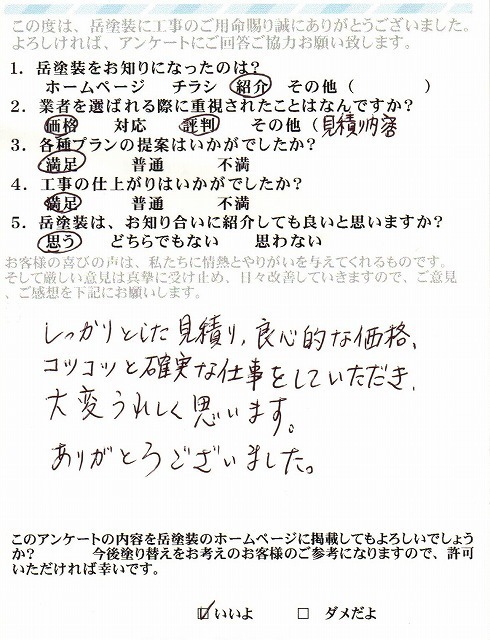 この度は、岳塗装に工事のご用命賜り誠にありがとうございました。
よろしければ、アンケートにご回答ご協力お願い致します。
1．岳塗装をお知りになったのは？
ホームページ　チラシ　紹介　その他（　　　　）
2．業者を選ばれる際に重視されたことはなんですか？
価格　対応　評判　その他（見積り内容
3．各種プランの提案はいかがでしたか？
満足　普通　不満
4．工事の仕上がりはいかがでしたか？
満足　普通　不満
5．岳塗装は、お知り合いに紹介しても良いと思いますか？
思う　どちらでもない　思わない
お客様の喜びの声は、私たちに情熱とやりがいを与えてくれるものです。
そして厳しい意見は真摯に受け止め、日々改善していきますので、ご意見
、ご感想を下記にお願いします。
しっかりとした見積り、良心的な価格、
コツコツと確実な仕事をしていただき、
大変うれしく思います。
ありがとうございました。
このアンケートの内容を岳塗装のホームページに掲載してもよろしいでしょう
か？　　今後塗り替えをお考えのお客様のご参考になりますので、許可
いただければ幸いです。
☑いいよ　□ ダメだよ